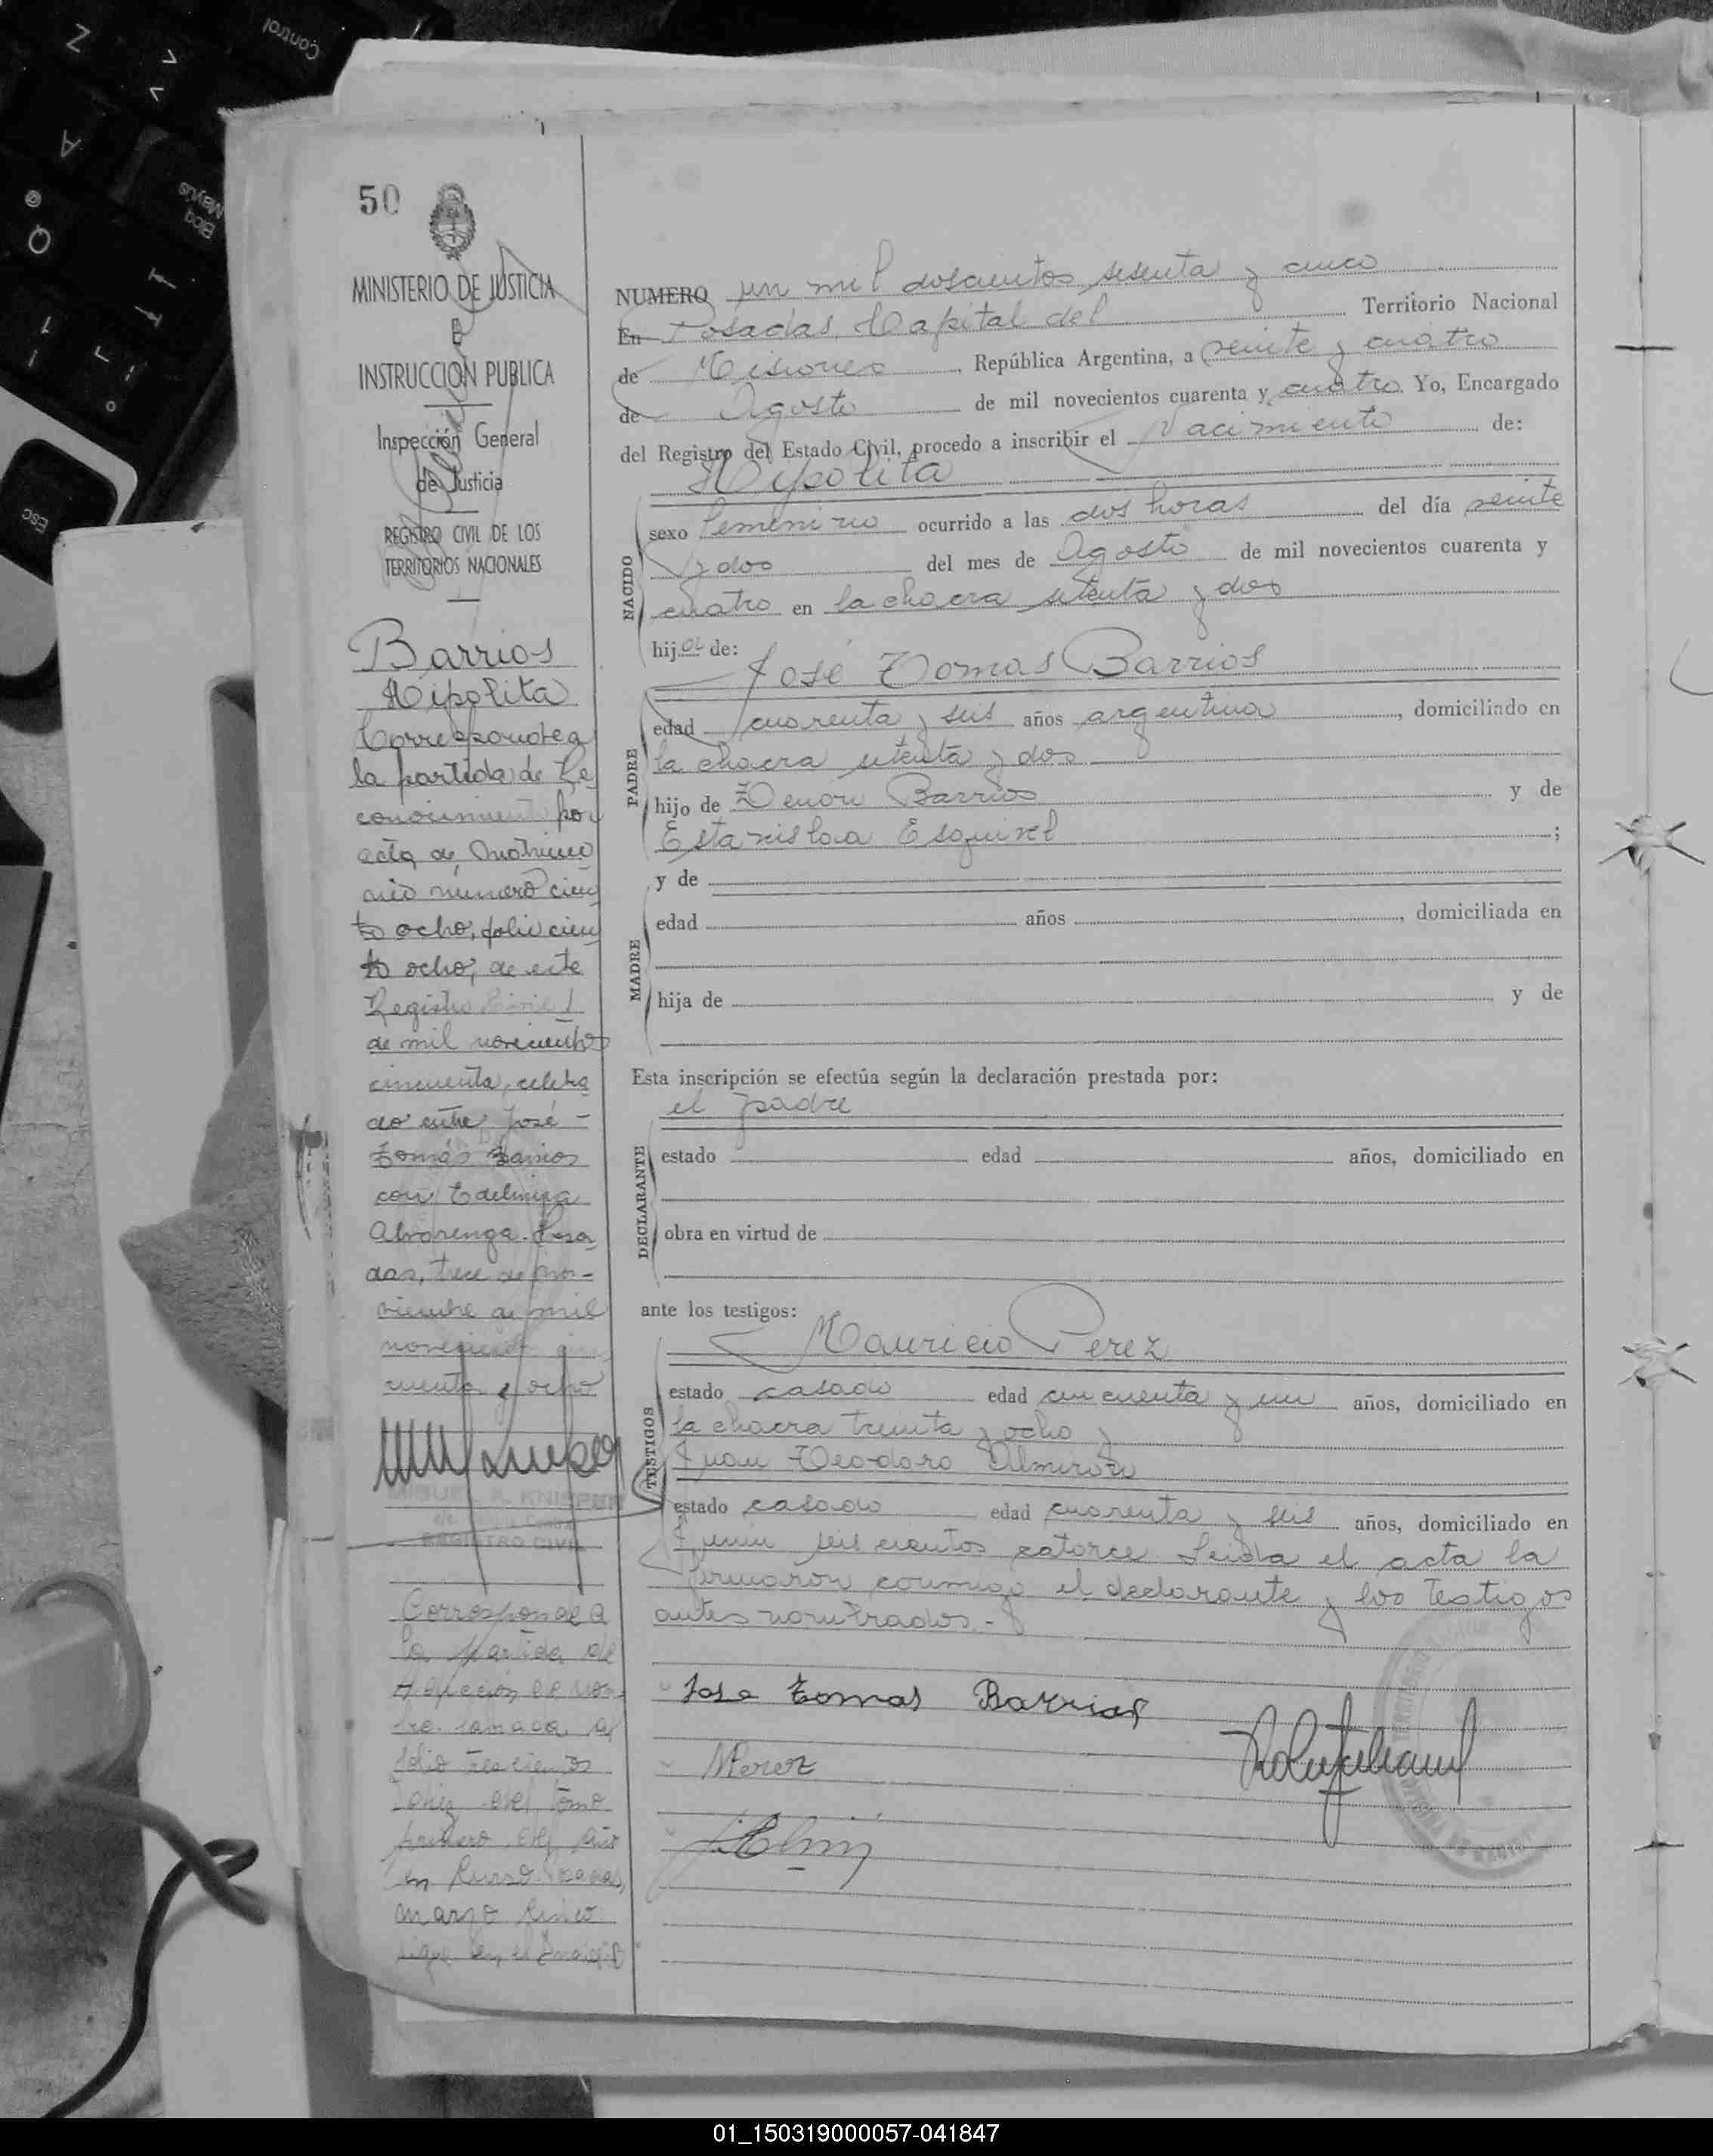 50
MINISTERIO DE JUSTICIA
E
INSTRUCCION PUBLICA
Inspección General
de Justicia
REGISTRO CIVIL DE LOS
TERRITORIOS NACIONALES
Barrios
Hipolita
Corresponde a
la partida de Re
conocimiento por
acta de Matrimo
nio número cien
to ocho, folio cien
to ocho, de este
Registro Civil
de mil novecientos
cincuenta, celebra
do entre José
Tomás Barrios
con Edelmira
Alvarenga. Posa
das, trece de no-
viembre de mil
novecientos cin
cuenta y ocho
MIGUEL A. KNIPPER
REGISTRO CIVIL
Corresponde a
la partida de
Adopción
folio trescientos
diez del Tomo
primero del año
en curso
marzo cinco
NUMERO un mil doscientos sesenta y cinco
En Posadas, Capital del Territorio Nacional
de Misiones, República Argentina, a veinte y cuatro
de Agosto de mil novecientos cuarenta y cuatro Yo, Encargado
del Registro del Estado Civil, procedo a inscribir el Nacimiento de:
Hipolita
NACIDO
sexo femenino ocurrido a las dos horas del día veinte
y dos del mes de Agosto de mil novecientos cuarenta y
cuatro en la chacra setenta y dos
hija de:
José Tomas Barrios
PADRE
edad cuarenta y seis años argentino, domiciliado en
la chacra setenta y dos
hijo de Zenon Barrios y de
Estanislaa Esquivel ;
y de
MADRE
edad años, domiciliada en
hija de y de
Esta inscripción se efectúa según la declaración prestada por:
el padre
DECLARANTE
estado edad años, domiciliado en
obra en virtud de
ante los testigos:
Mauricio Perez
TESTIGOS
estado casado edad cincuenta y un años, domiciliado en
la chacra treinta y ocho y
Juan Deodoro Almiron
estado casado edad cuarenta y seis años, domiciliado en
Junin seis cientos catorce Leida el acta la
firmaron conmigo el declarante y los testigos
antes nombrados.-
Jose tomas Barrios
MPerez
01_150319000057-041847